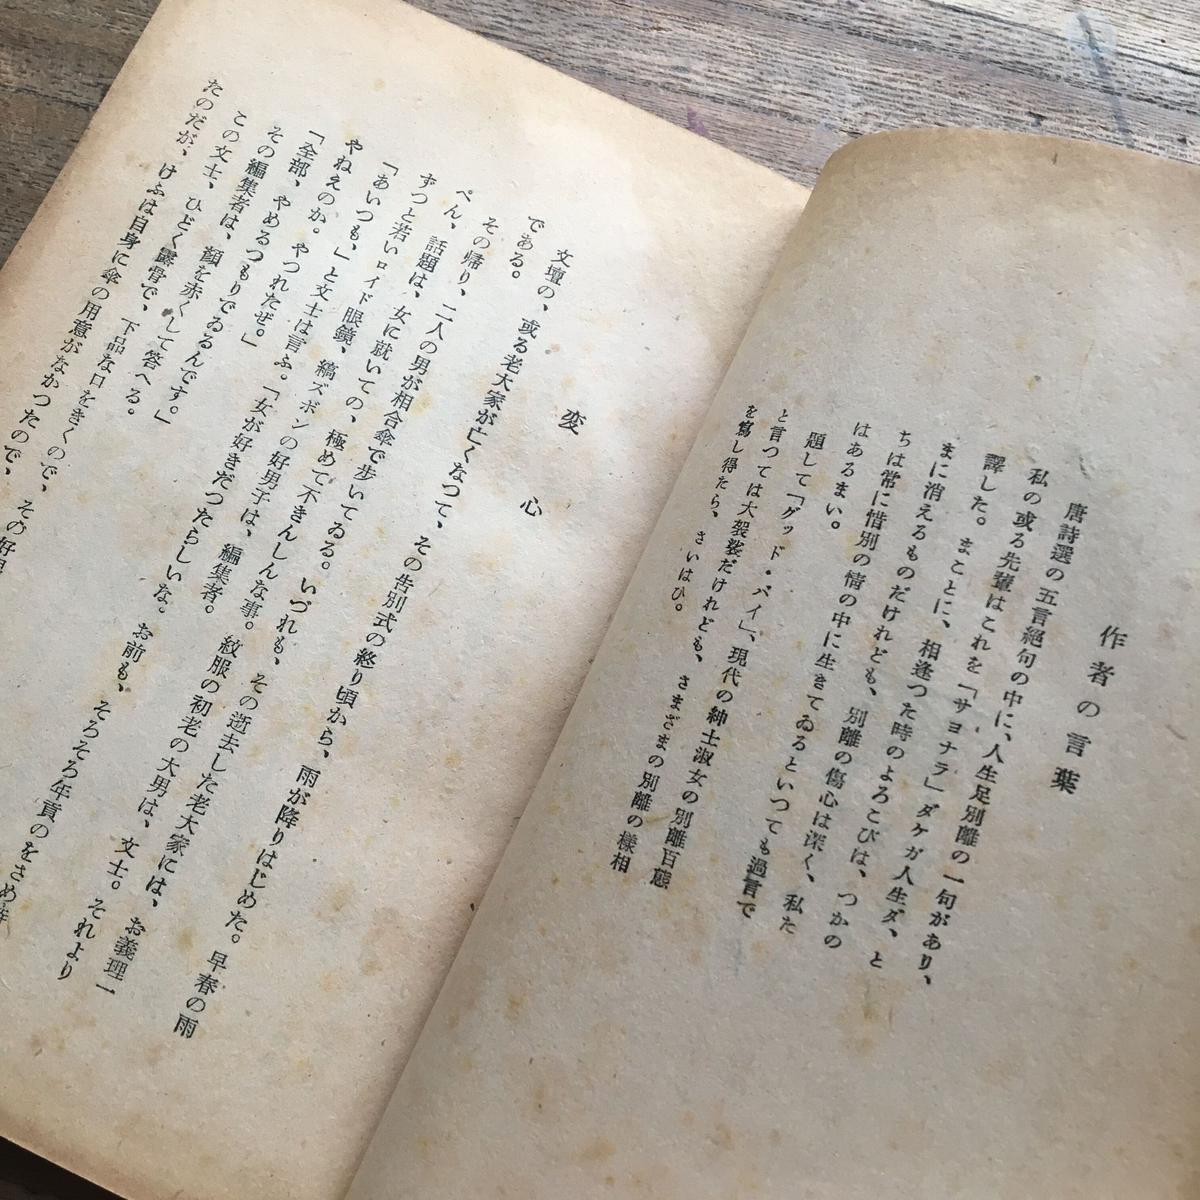 作者の言葉
唐詩選の五言絶句の中に、人生足別離の一句があり、
私の或る先輩はこれを「サヨナラ」ダケガ人生ダ、と
譯した。まことに、相逢つた時のよろこびは、つかの
まに消えるものだけれども、別離の傷心は深く、私た
ちは常に惜別の情の中に生きてゐるといつても過言で
はあるまい。
題して「グッド・バイ」、現代の紳士淑女の別離百態
と言つては大袈裟だけれども、さまざまの別離の樣相
を寫し得たら、さいはひ。
変心
文壇の、或る老大家が亡くなつて、その告別式の終り頃から、雨が降りはじめた。早春の雨
である。
その帰り、二人の男が相合傘で歩いてゐる。いづれも、その逝去した老大家には、お義理一
ぺん、話題は、女に就いての、極めて不きんしんな事。紋服の初老の大男は、文士。それより
ずつと若いロイド眼鏡、縞ズボンの好男子は、編集者。
「あいつも、」と文士は言ふ。「女が好きだつたらしいな。お前も、そろそろ年貢のをさめ時
やねえのか。やつれたぜ。」
「全部、やめるつもりでゐるんです。」
その編集者は、顔を赤くして答へる。
この文士、ひどく露骨で、下品な口をきくので、その好男
たのだが、けふは自身に傘の用意がなかつたので、